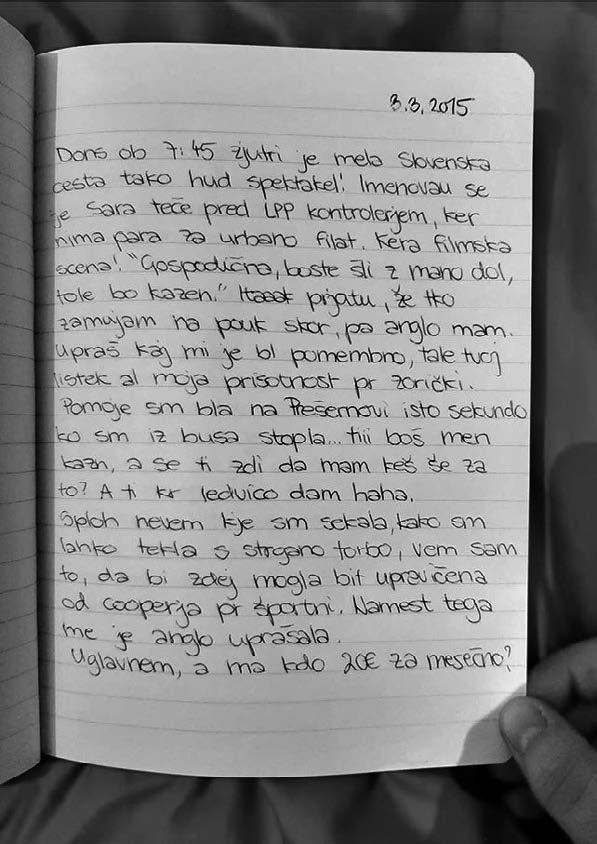 3.3.2015
Dons ob 7:45 zjutri je mela Slovenska
cesta tako hud spektakel! Imenovau se
je Sara teče pred LPP kontrolerjem, ker
nima para za urbano filat. Kera filmska
scena! "Gospodična, boste šli z mano dol,
tole bo kazen." prjatu, že tko
zamujam na pouk skor, pa anglo mam.
Upraš kaj mi je bl pomembno, tale tvoj
listek al moja prisotnost pr zorički.
Pomoje sm bla na Prešernovi isto sekundo
ko sm iz busa stopla... tiii boš men
kazn, a se ti zdi da mam keš še za
to? A ti kr ledvico dam haha.
Sploh nevem kje sm sekala, kako sm
lahko tekla s strgano torbo, vem sam
to, da bi zdej mogla bit upravičena
od cooperja pr športni. Namest tega
me je anglo uprašala.
Uglavnem, a ma kdo 20€ za mesečno?